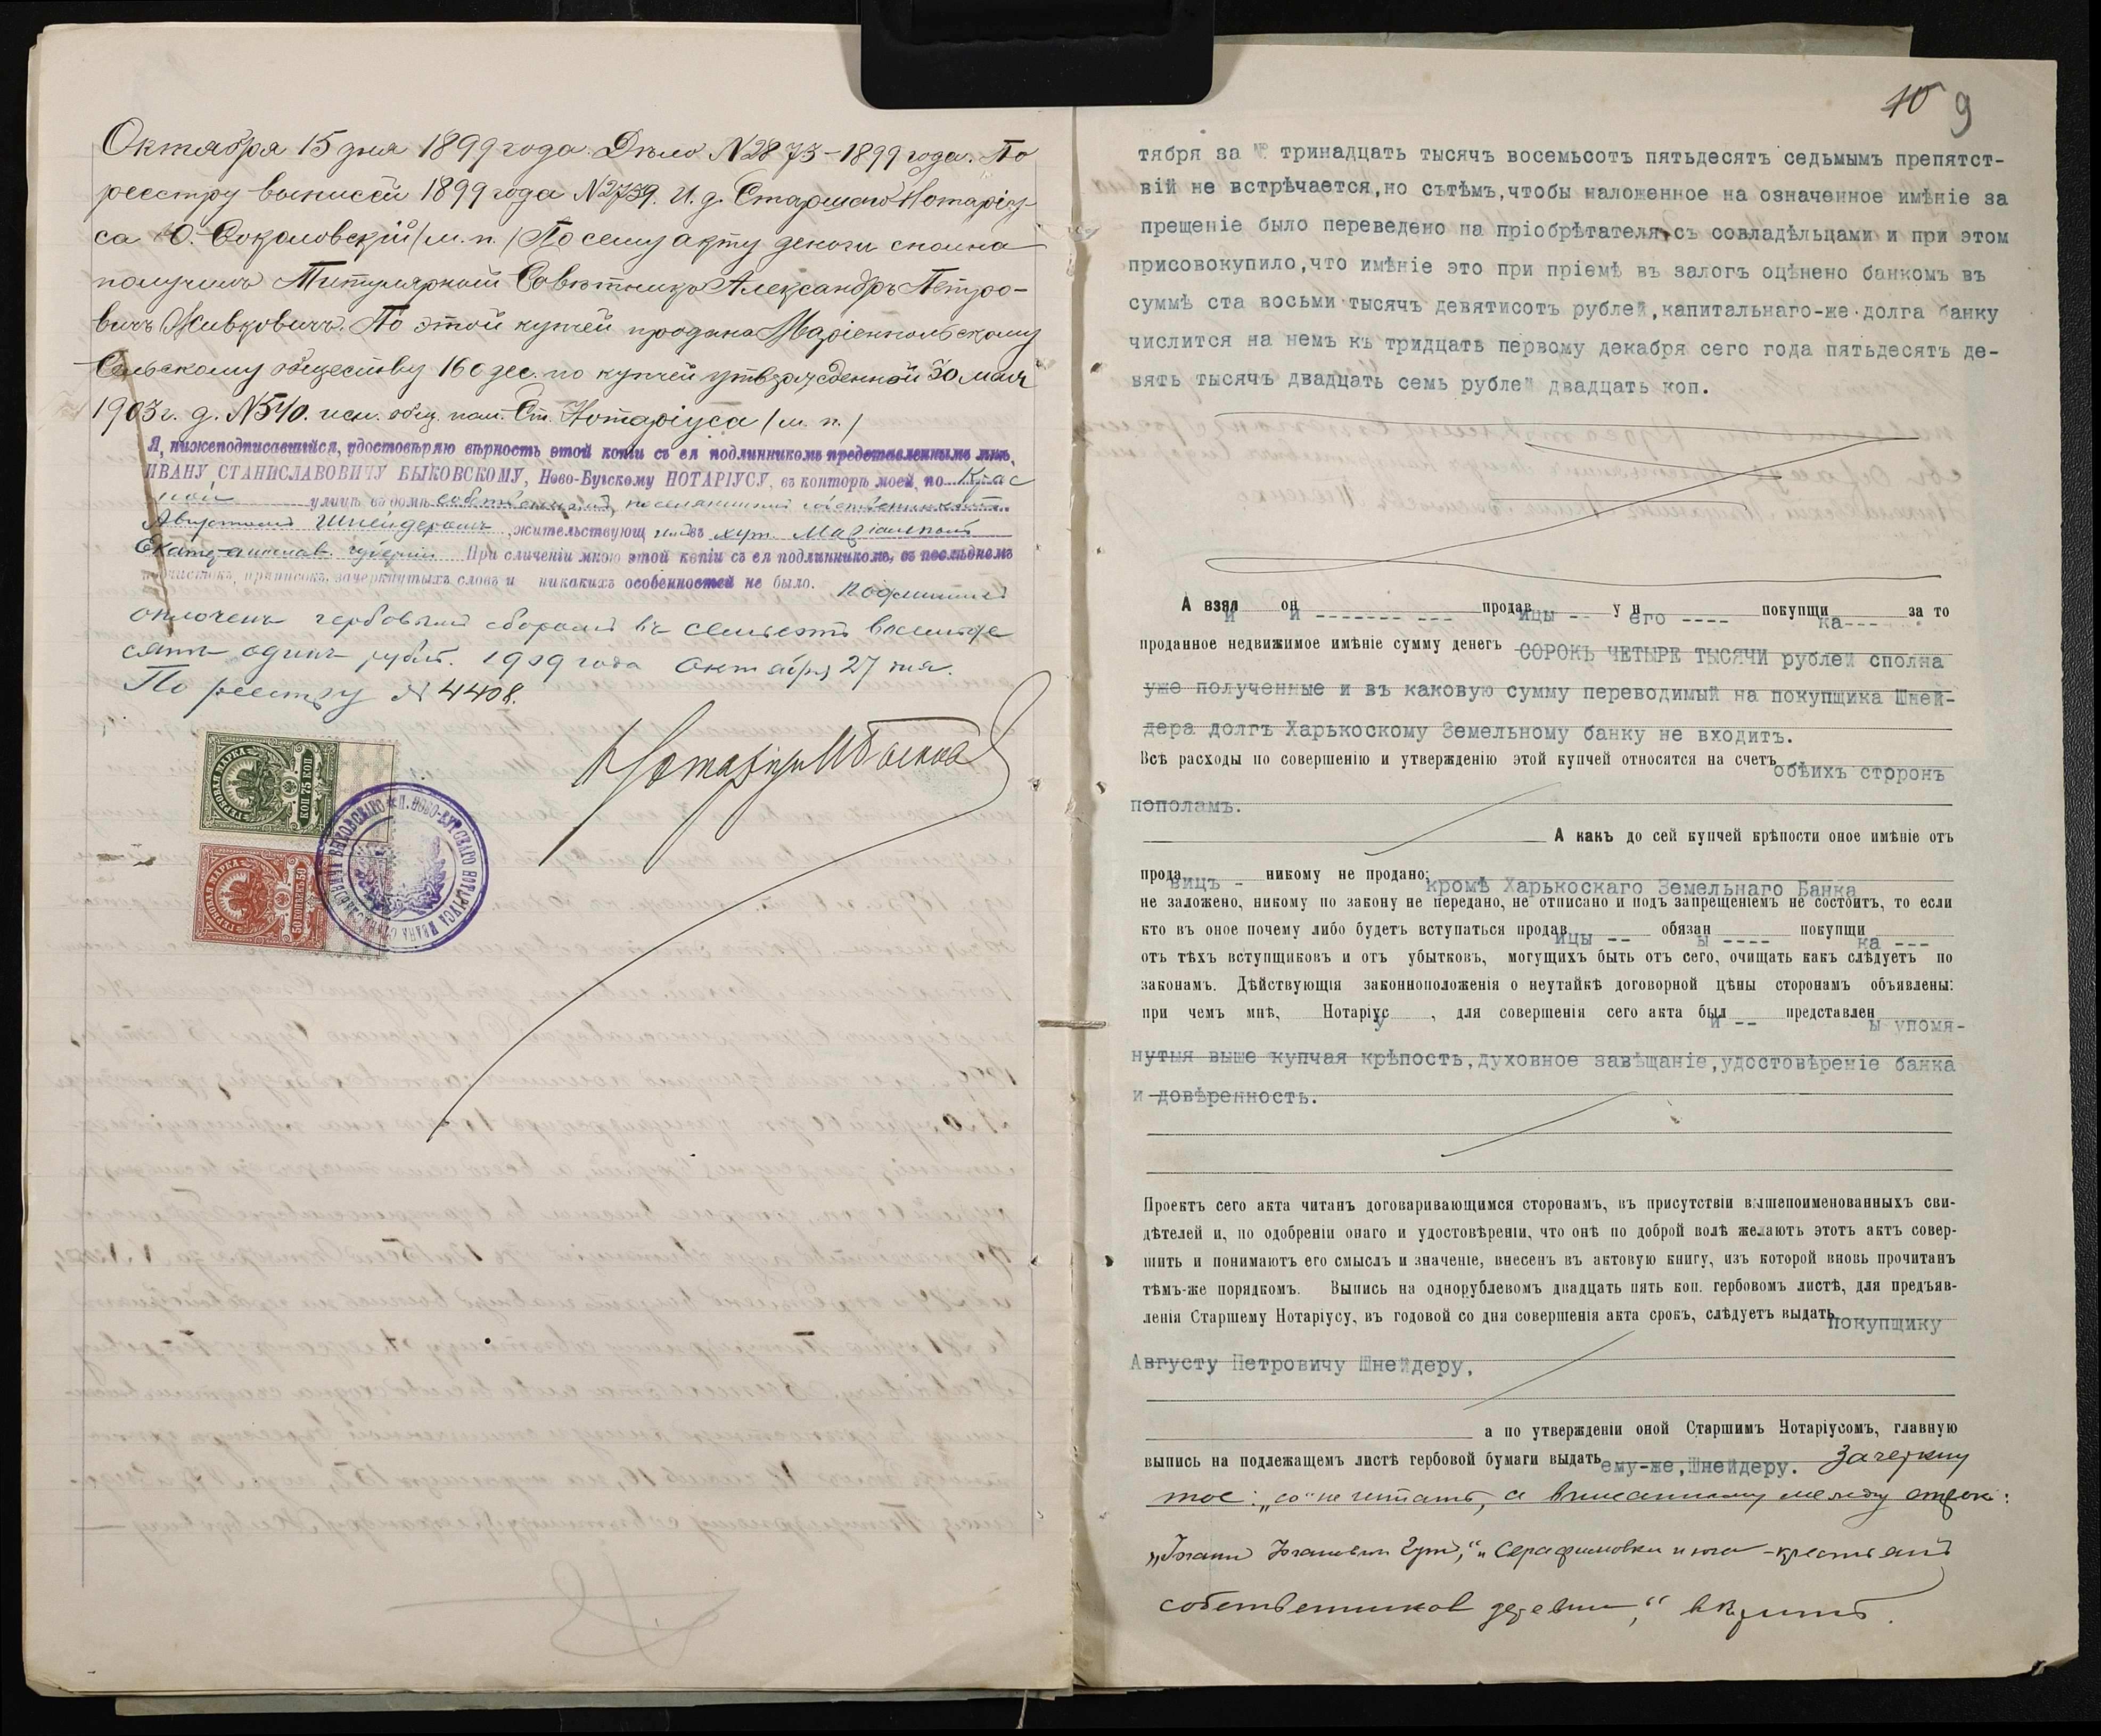 Октября 15 дня 1899 года. Дѣло № 2873-1899 года. По
реестру выписей 1899 года № 2739. И. д. Старшаго Нотаріу-
са Ю. Соколовскій /м. п./ По сему акту деньги сполна
получилъ Титулярный Совѣтникъ Александръ Петро-
вичъ Живковичъ. По этой купчей продана Маріенпольскому
Сельскому обществу 160 дес. по купчей утвержденной 30 мая
1903 г. д. № 540. исп. обяз. пом. Ст. Нотаріуса /м. п./
Я, нижеподписавшійся, удостовѣряю вѣрность этой копіи съ ея подлинникомъ представленнымъ мнѣ,
ИВАНУ СТАНИСЛАВОВИЧУ БЫКОВСКОМУ, Ново-Бугскому НОТАРІУСУ, въ конторѣ моей, по Крас
ной улицѣ въ домѣ собственномъ, поселяниномъ собственникомъ
Августомъ Шнейдеромъ, жительствующ имъ въ хут. Маріамполь
Екатеринослав. губерніи При сличеніи мною этой копіи съ ея подлинникомъ, въ послѣднемъ
подчистокъ, приписокъ, зачеркнутыхъ словъ и никакихъ особенностей не было. Подлинный
оплоченъ гербовымъ сборомъ въ семьсотъ восемьде
сятъ одинъ рубл. 1909 года Октября 27 дня.
По реестру № 4408.
Нотаріусъ И Быковскій
ГЕРБОВАЯ МАРКА
75 КОП 75 КОП
ГЕРБОВАЯ МАРКА
50 КОПѢЕКЪ 50
П. НОВО-БУГСКАГО НОТАРІУСА ИВАНА СТАНИСЛАВОВИЧА БЫКОВСКАГО
10 9
тября за № тринадцать тысячъ восемьсотъ пятьдесятъ седьмымъ препятст-
вій не встрѣчается,но сътѣмъ,чтобы наложенное на означенное имѣніе за
прещеніе было переведено на пріобрѣтателя съ совладѣльцами и при этом
присовокупило,что имѣніе это при пріемѣ въ залогъ оцѣнено банкомъ въ
суммѣ ста восьми тысячъ девятисотъ рублей,капитальнаго-же долга банку
числится на немъ къ тридцать первому декабря сего года пятьдесятъ де-
вять тысячъ двадцать семь рублей двадцать коп.
А взял и он и -------- --- продав ицы -- у н его ---- покупщи ка--- за то
проданное недвижимое имѣніе сумму денегъ СОРОКЪ ЧЕТЫРЕ ТЫСЯЧИ рублей сполна
уже полученные и въ каковую сумму переводимый на покупщика Шней-
дера долгъ Харькоскому Земельному банку не входитъ.
Всѣ расходы по совершенію и утвержденію этой купчей относятся на счетъ обѣихъ сторонъ
пополамъ.
А какъ до сей купчей крѣпости оное имѣніе отъ
прода вицъ - никому не продано; кромѣ Харькоскаго Земельнаго Банка
не заложено, никому по закону не передано, не отписано и подъ запрещеніемъ не состоитъ, то если
кто въ оное почему либо будетъ вступаться продав ицы -- обязан ы ---- покупщи ка ---
отъ тѣхъ вступщиковъ и отъ убытковъ, могущихъ быть отъ сего, очищать какъ слѣдуетъ по
законамъ. Дѣйствующія законноположенія о неутайкѣ договорной цѣны сторонамъ объявлены:
при чемъ мнѣ, Нотаріус у, для совершенія сего акта был и -- представлен ы упомя-
нутыя выше купчая крѣпость,духовное завѣщаніе,удостовѣреніе банка
и довѣренность.
Проектъ сего акта читанъ договаривающимся сторонамъ, въ присутствіи вышепоименованныхъ сви-
дѣтелей и, по одобреніи онаго и удостовѣреніи, что онѣ по доброй волѣ желаютъ этотъ актъ совер-
шить и понимаютъ его смыслъ и значеніе, внесенъ въ актовую книгу, изъ которой вновь прочитанъ
тѣмъ-же порядкомъ. Выпись на однорублевомъ двадцать пять коп. гербовомъ листѣ, для предъяв-
ленія Старшему Нотаріусу, въ годовой со дня совершенія акта срокъ, слѣдуетъ выдать покупщику
Августу Петровичу Шнейдеру,
а по утвержденіи оной Старшимъ Нотаріусомъ, главную
выпись на подлежащемъ листѣ гербовой бумаги выдать ему-же,Шнейдеру. Зачеркну
тое: „со" не читать, а вписанному между строк:
„Іоганъ Іогановичъ Гут," „Серафимовки и юга - крестьянъ
собственников деревни," вѣрить.